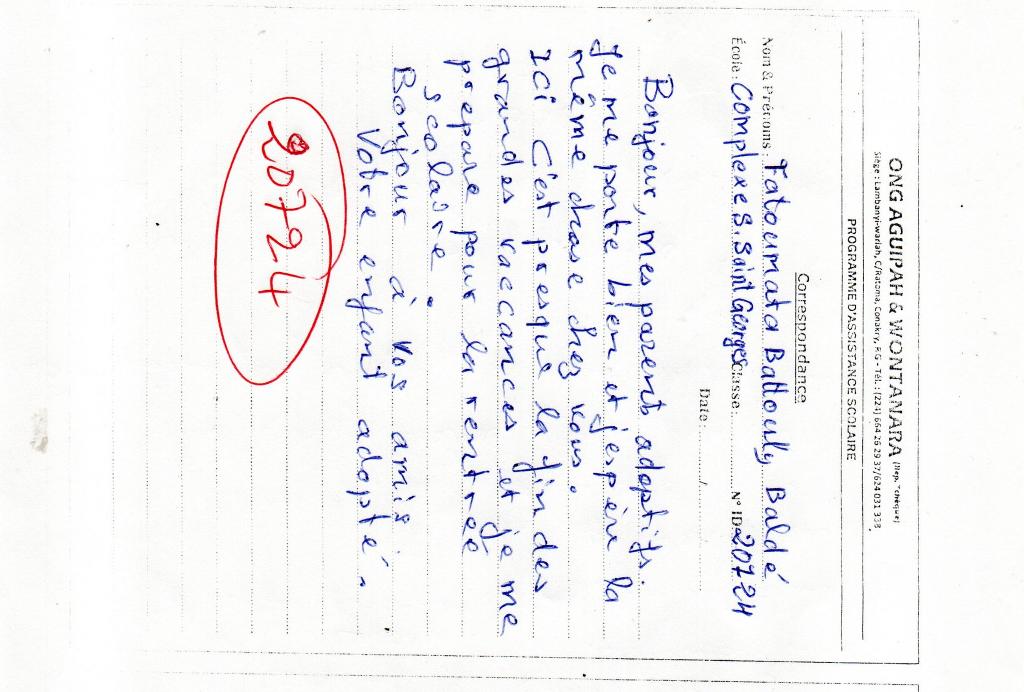 ONG AGUIPAH & WONTANARA (Rep. Tchèque)
Siège : Lambanyi-wariah, C/Ratoma, Conakry, RG - Tél. : (224) 664 26 29 37/624 031 338
PROGRAMME D'ASSISTANCE SCOLAIRE
Correspondance
Nom & Prénoms : Fatoumata Battouly Baldé
École : Complexe S. Saint Georges Classe : ........ N° ID 20724
Date : ......../........
Bonjour, mes parent adoptifs.
Je me porte bien et j'espère la
même chose chez vous.
Ici c'est presque la fin des
grandes vaccances et je me
prepare pour la rentrée
scolaire.
Bonjour à vos amis
Votre enfant adopté.
20724